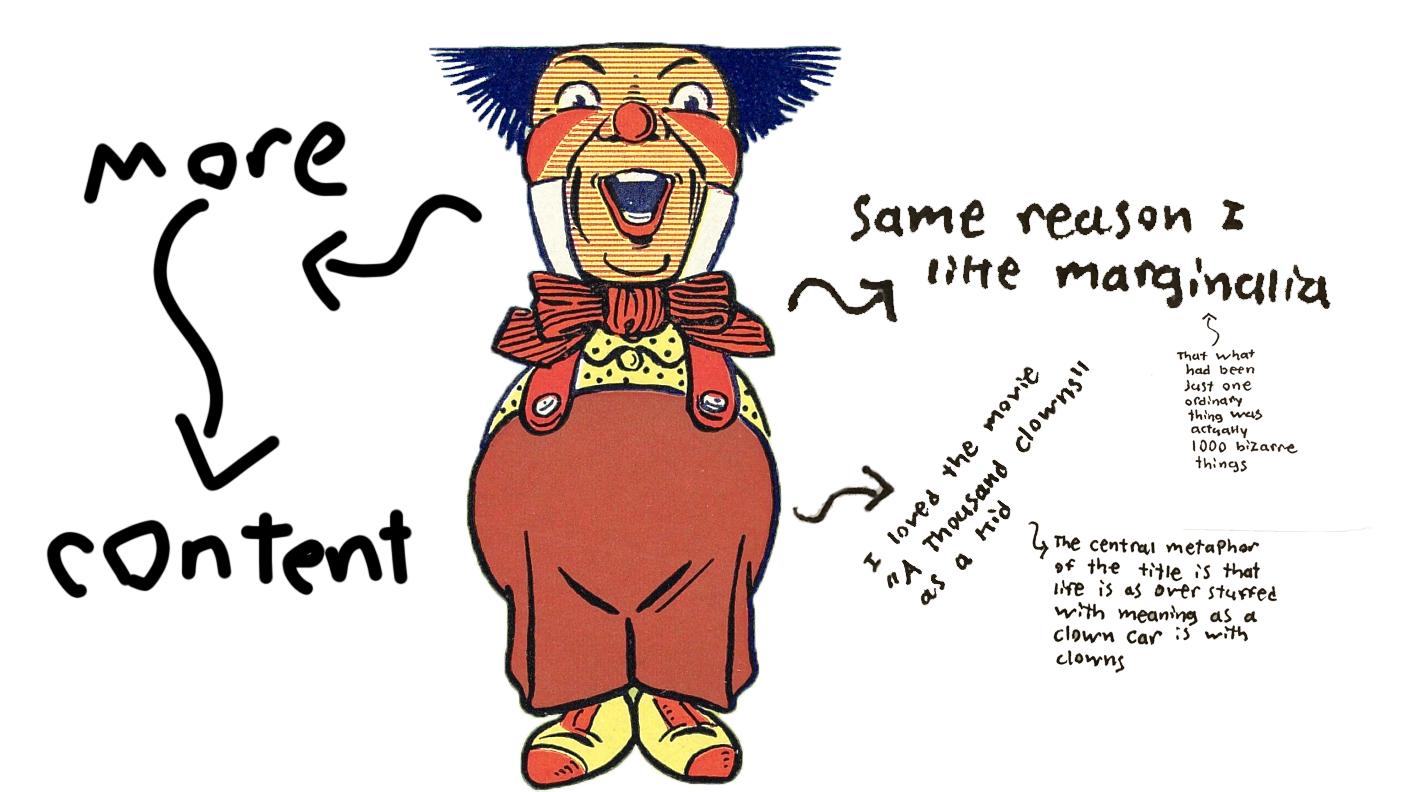 more
content
Same reason I
like marginalia
That what
had been
Just one
ordinary
thing was
actually
1000 bizarre
things
I loved the movie
"A Thousand clowns"
as a kid
The central metaphor
of the title is that
life is as over stuffed
with meaning as a
clown car is with
clowns